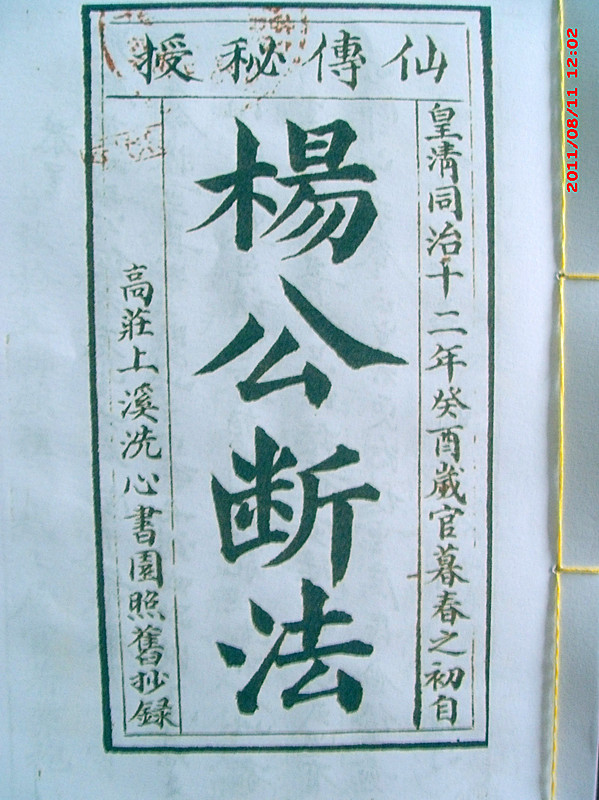 仙傳秘授
皇清同治十二年癸酉嵗官暮春之初自
楊公断法
高莊上溪洗心書園照舊抄録
2011/08/11 12:02